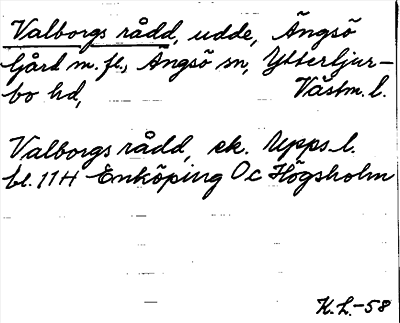 Valborgs rådd, udde, Ängsö
Gård m. fl., Ängsö sn, Ytterljur-
bo hd, Västm. l.
Valborgs rådd, ek. Upps. l.
bl. 11H Enköping Oc Högsholm
K.L.-58